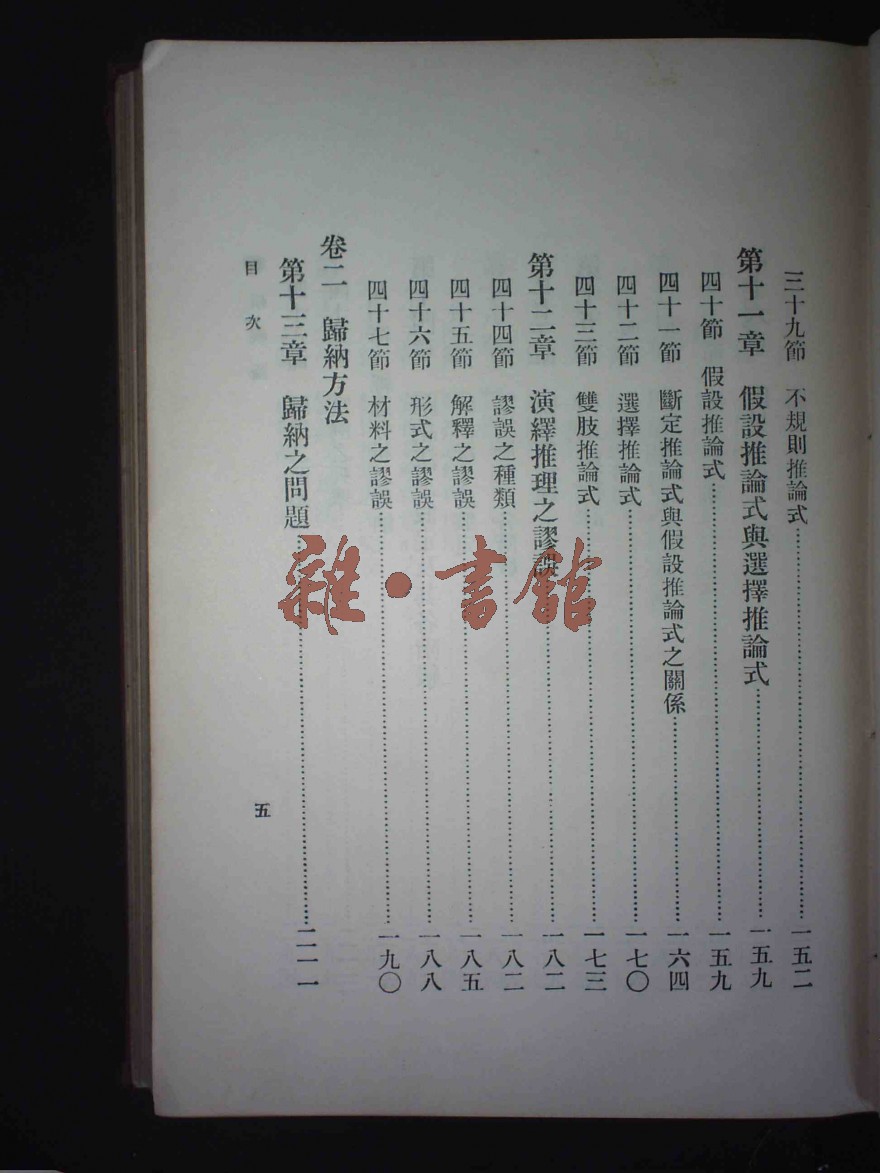 三十九節　不規則推論式………一五二
第十一章　假設推論式與選擇推論式………一五九
四十節　假設推論式………一五九
四十一節　斷定推論式與假設推論式之關係………一六四
四十二節　選擇推論式………一七〇
四十三節　雙肢推論式………一七三
第十二章　演繹推理之謬誤………一八二
四十四節　謬誤之種類………一八二
四十五節　解釋之謬誤………一八五
四十六節　形式之謬誤………一八八
四十七節　材料之謬誤………一九〇
卷二　歸納方法
第十三章　歸納之問題………二一一
目次
五
雜·書館